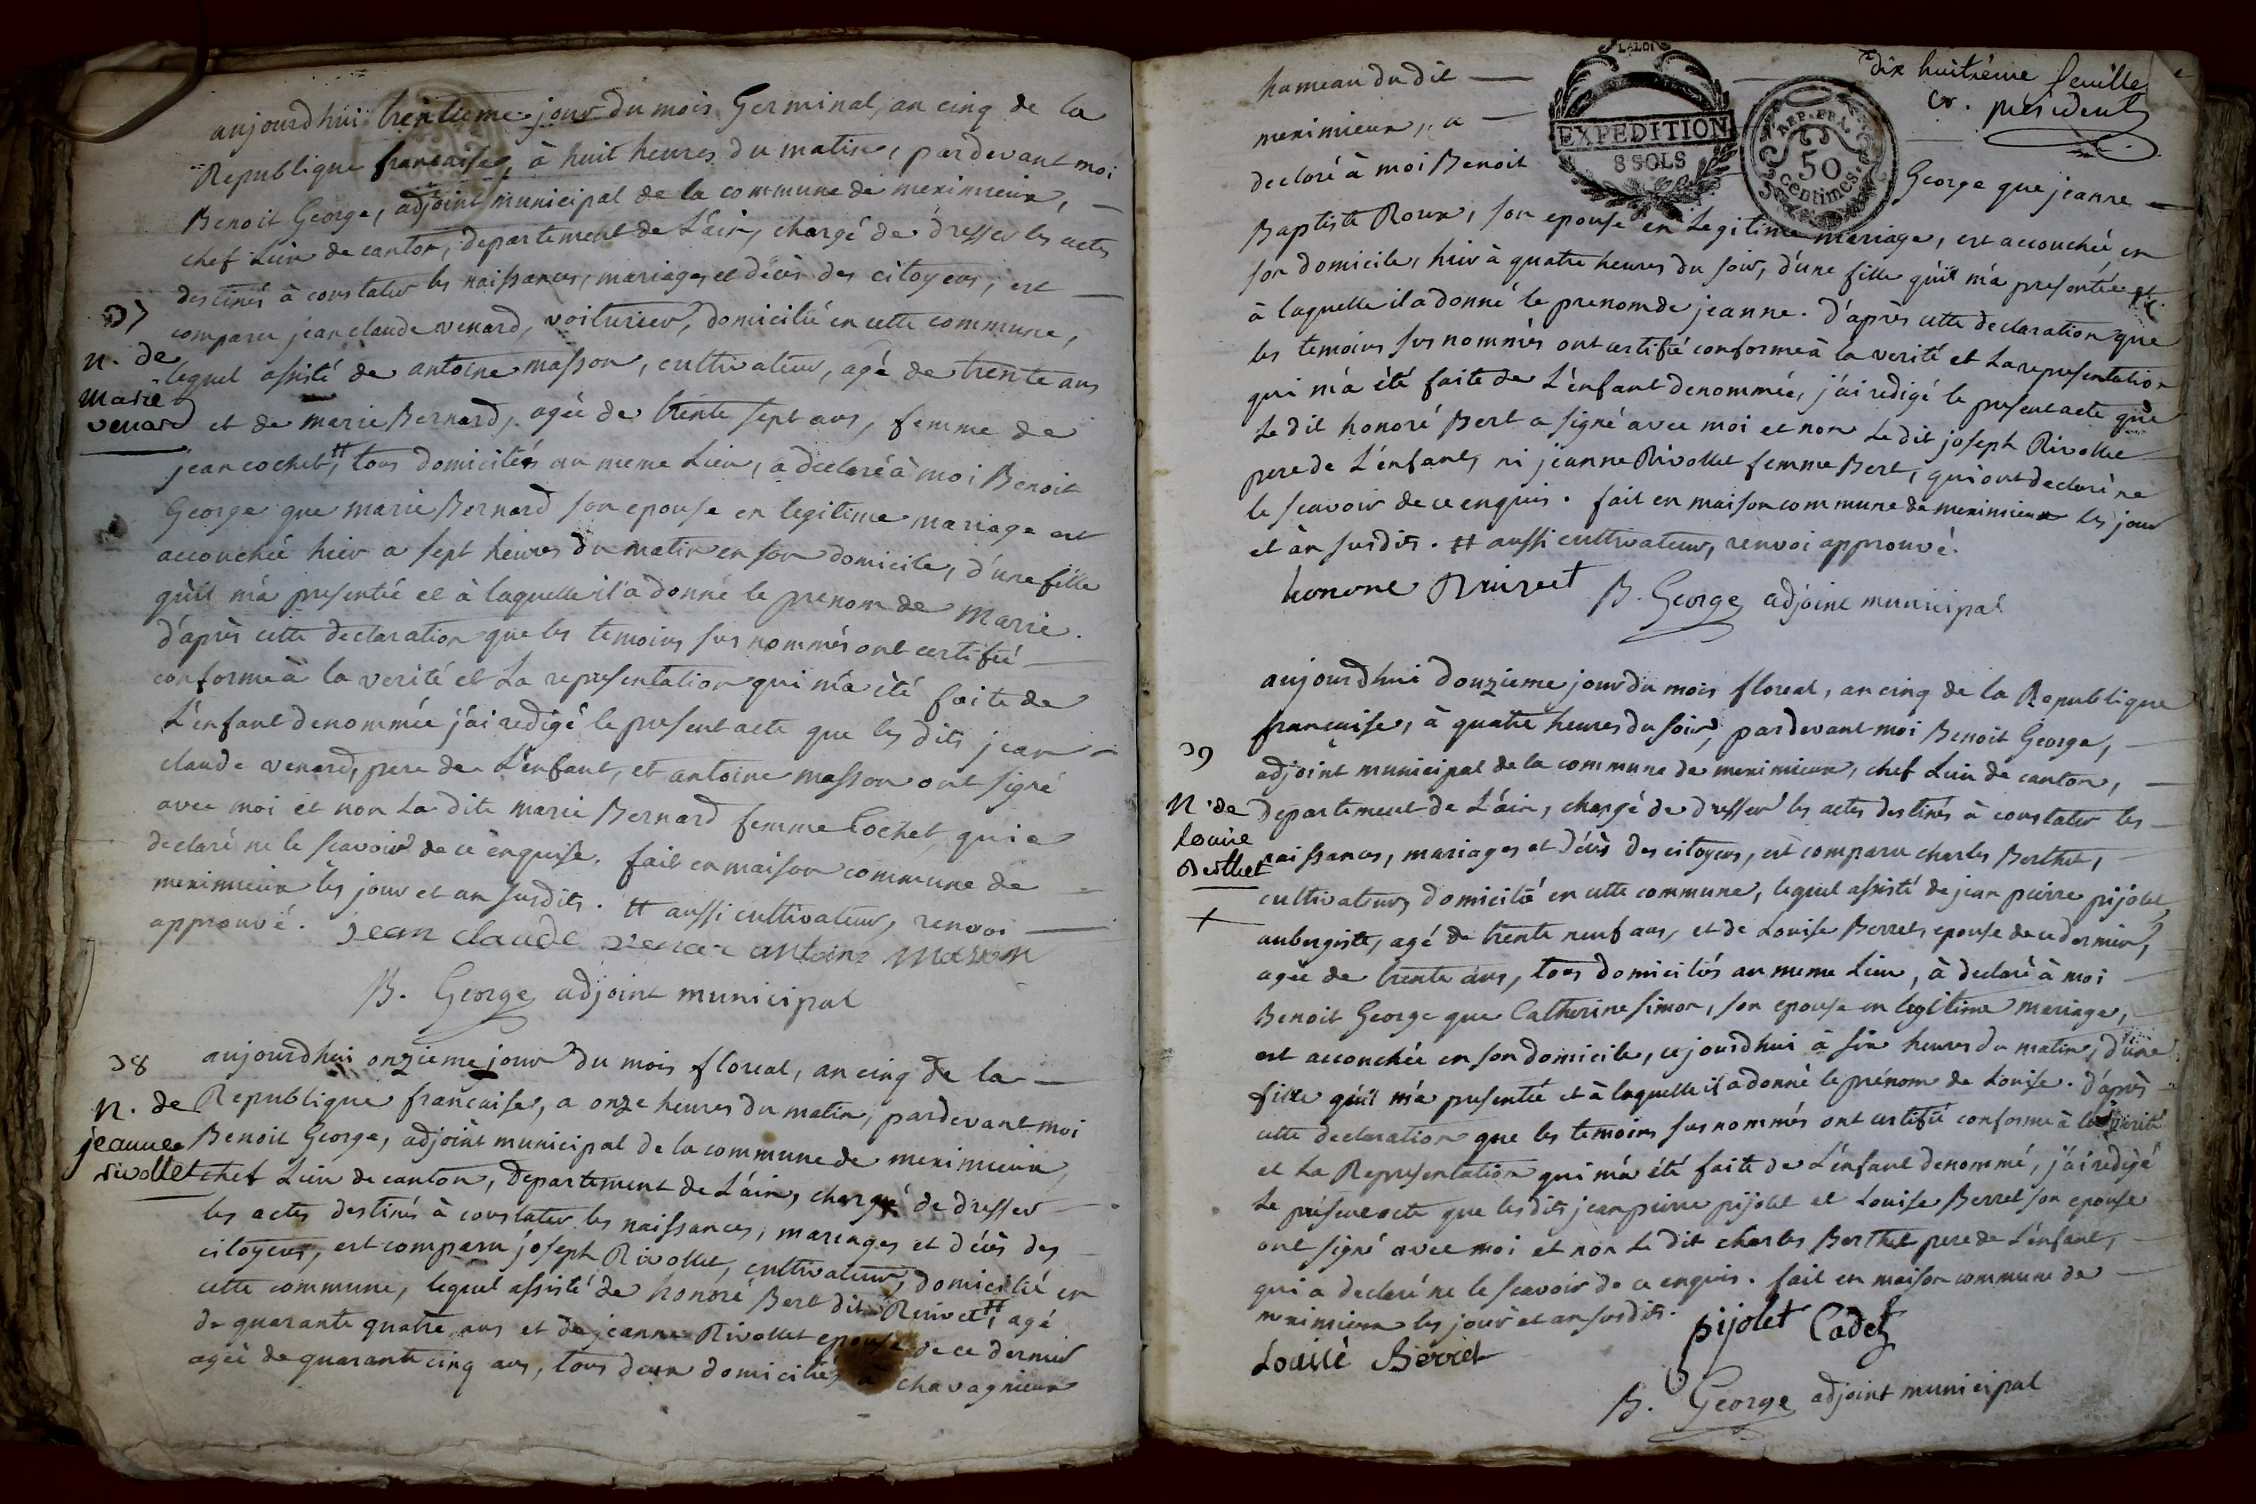 aujourdhui trentieme jour du mois Germinal, an cinq de la
Republique francaise, à huit heures du matin, pardevant moi
Benoit George, adjoint municipal de la commune de meximieux,
chef Lieu de canton, departement de L'ain, chargé de dresser les actes
destinés à constater les naissances, mariages et décès des citoyens, est
37
comparu jean claude venard, voiturier, domicilié en cette commune,
n. de
marie
venard
lequel assisté de antoine masson, cultivateur, agé de trente ans
et de marie Bernard, agée de trente sept ans, femme de
jean cochet, # tous domiciliés au meme Lieu, a declaré à moi Benoit
George que marie Bernard son epouse en legitime mariage est
accouchée hier a sept heures du matin en son domicile, d'une fille
qu'il m'a presentée et à laquelle il a donné le prenom de marie.
d'après cette declaration que les temoins sus nommés ont certifié
conforme à la verité et La representation qui m'a été faite de
L'enfant denommée j'ai redigé le present acte que les dits jean
claude venard, pere de L'enfant, et antoine masson ont signé
avec moi et non La dite marie Bernard femme Cochet qui a
declaré ne le scavoir de ce enquise. fait en maison commune de
meximieux les jour et an susdits. # aussi cultivateur, renvoi
approuvé. jean claude venar antoine masson
B. George adjoint municipal
38
n. de
jeanne
rivollet
aujourdhui onzieme jour du mois floreal, an cinq de la
Republique francaise, a onze heures du matin, pardevant moi
Benoit George, adjoint municipal de la commune de meximieux
chef Lieu de canton, Departement de L'ain, chargé de dresser
les actes destinés à constater les naissances, mariages et décès des
citoyens, est comparu joseph Rivollet, cultivateur, domicilié en
cette commune, lequel assisté de honoré Bert dit Ruivet #, agé
de quarante quatre ans et de jeanne Rivollet epouse de ce dernier
agée de quarante cinq ans, tous deux domiciliés à chavagnieux
dix huitième feuille
cr. président
hameau du dit
meximieux, a
LA LOI
EXPEDITION
8 SOLS
REP. FRA.
50
centimes.
declaré à moi Benoit George que jeanne
Baptiste Roux, son epouse en Legitime mariage, est accouchée en
son domicile, hier à quatre heures du soir, d'une fille qu'il m'a presentée et
à laquelle il a donné le prenom de jeanne. D'après cette declaration que
les temoins sus nommés ont certifié conforme à la verité et La representation
qui m'a été faite de L'enfant denommée, j'ai redigé le present acte que
Le dit honoré Bert a signé avec moi et non Le dit joseph Rivollet
pere de L'enfant, ni jeanne Rivollet femme Bert, qui ont declaré ne
le scavoir de ce enquis. fait en maison commune de meximieux les jour
et an susdits. # aussi cultivateur, renvoi approuvé.
honore Ruivet B. George adjoint municipal
39
n. de
louise
Berthet
+
aujourdhui douzieme jour du mois floreal, an cinq de la Republique
francaise, à quatre heures du soir, pardevant moi Benoit George,
adjoint municipal de la commune de meximieux, chef Lieu de canton,
departement de L'ain, chargé de dresser les actes destinés à constater les
naissances, mariages et décès des citoyens, est comparu charles Berthet,
cultivateur, domicilié en cette commune, lequel assisté de jean pierre pijolet,
aubergiste, agé de trente neuf ans, et de Louise Berret, epouse de ce dernier,
agée de trente ans, tous domiciliés au meme Lieu, à declaré à moi
Benoit George que Catherine simon, son epouse en legitime mariage,
est accouchée en son domicile, cejourdhui à six heures du matin, d'une
fille qu'il m'a presentée et à laquelle il a donné le prénom de Louise. D'après
cette declaration que les temoins sus nommés ont certifié conforme à la verité
et La Representation qui m'a été faite de L'enfant denommé, j'ai redigé
Le présent acte que les dits jean pierre pijolet et Louise Berret son epouse
ont signé avec moi et non Le dit charles Berthet pere de L'enfant,
qui a declaré ne le scavoir de ce enquis. fait en maison commune de
meximieux les jour et an susdits.
pijolet Cadet
Louise Berret
B. George adjoint municipal